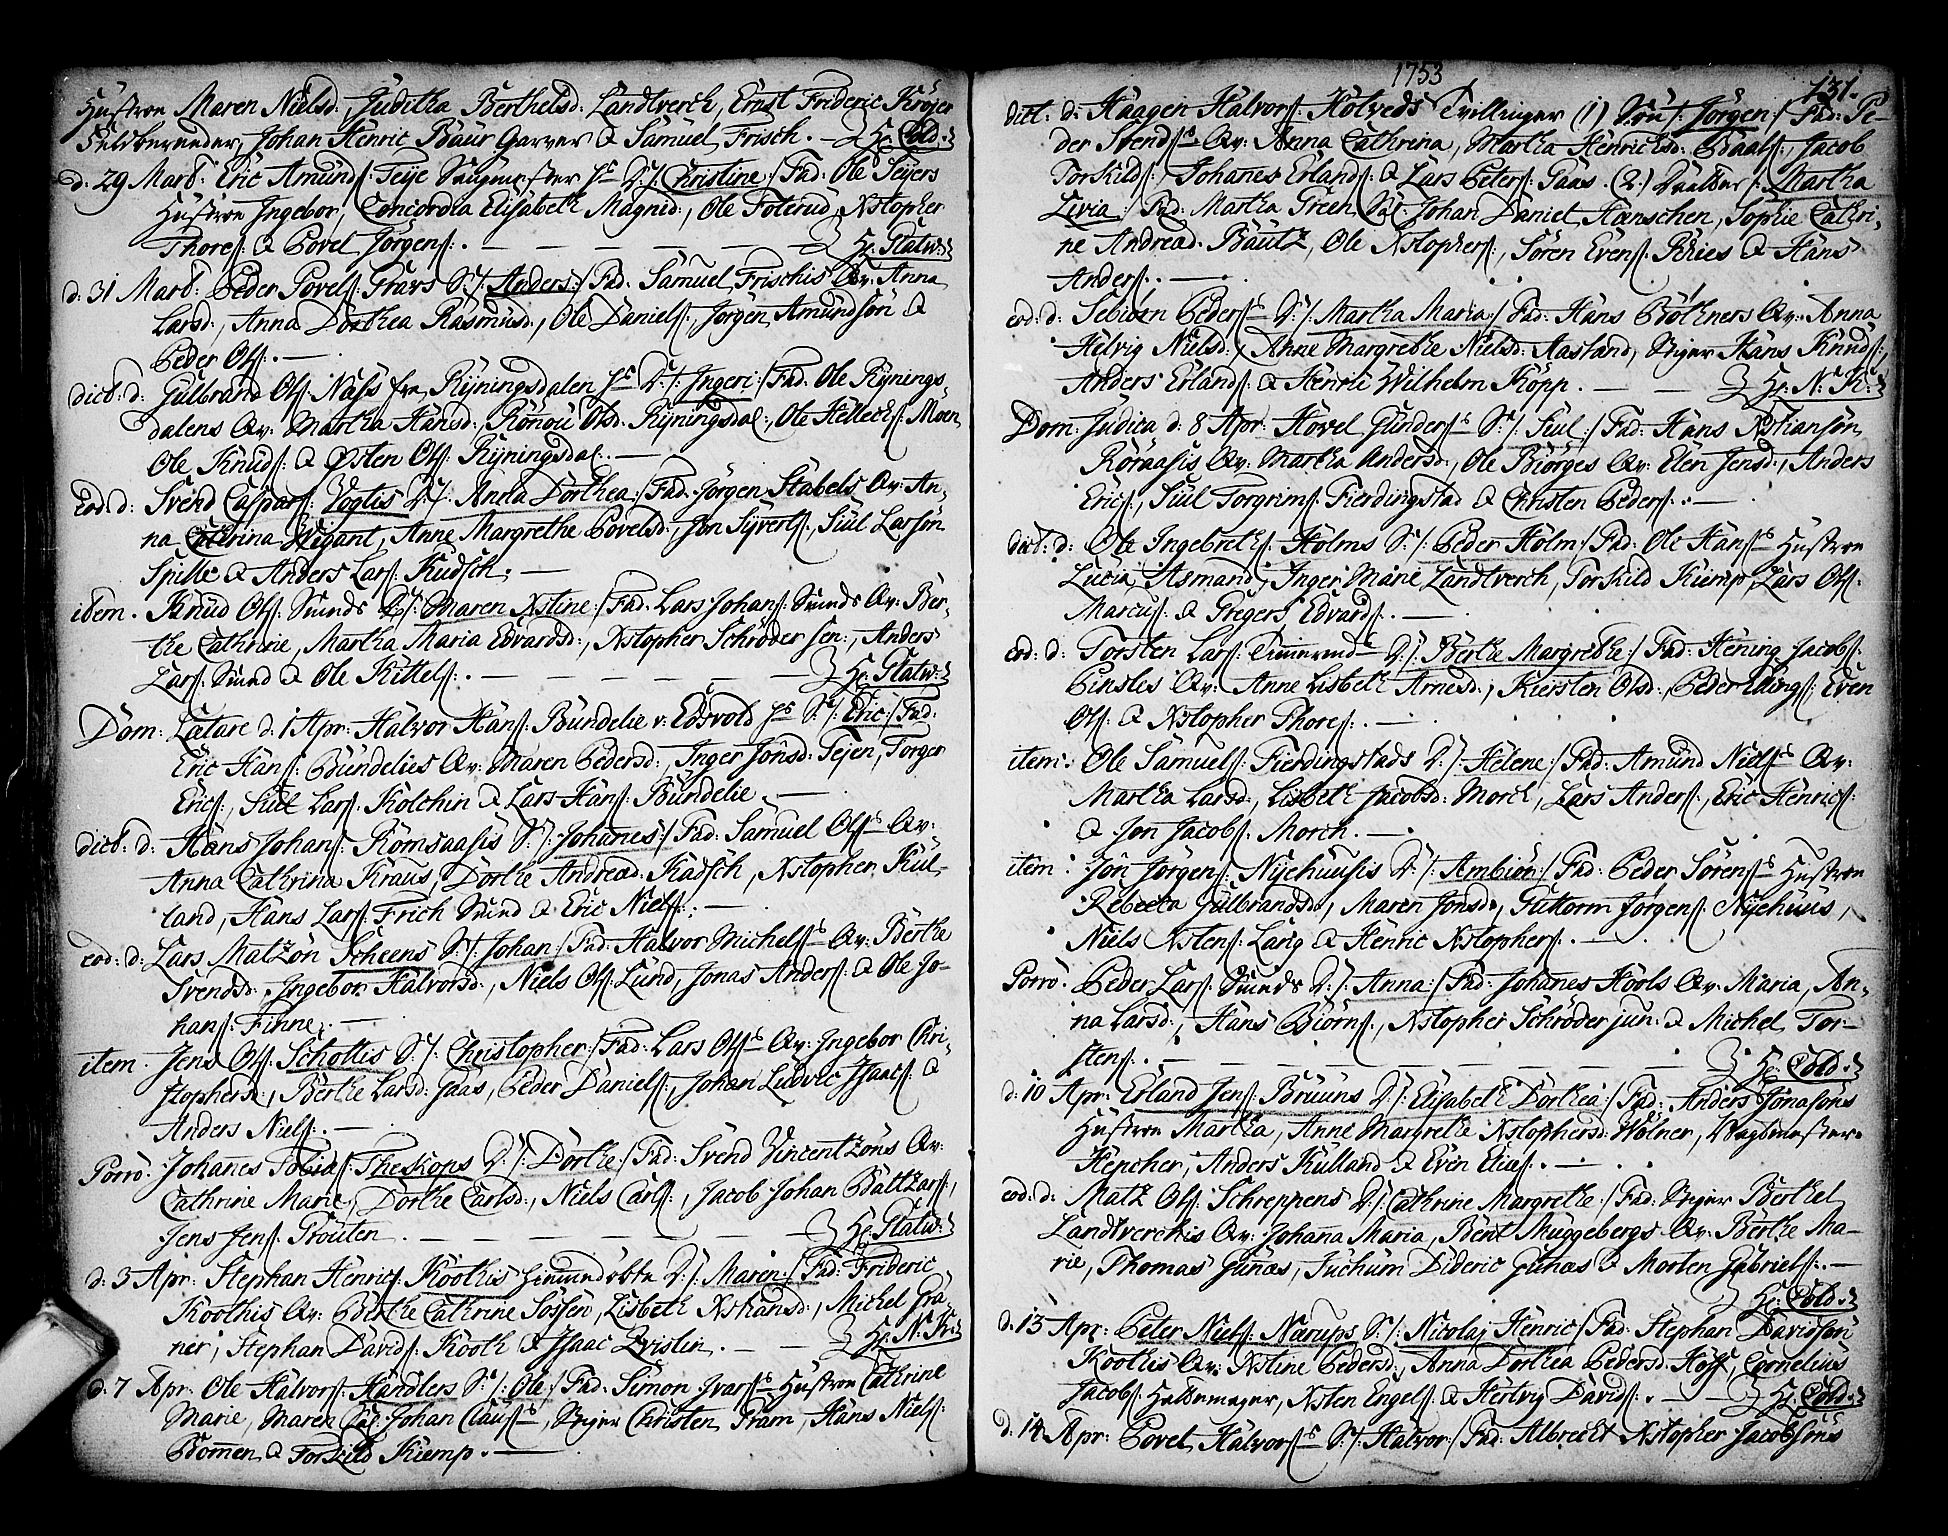 Hustroe Maren Nielsd:, Juditha Berthelsd: Landtverch, Ernst Frideric Krøjer
Feldbereeder, Johan Henric Baur Garver & Samuel Frisch. — Hr: Cold.
d. 29 Mart: Eric Amunds: Teije D: /: Christine :/ Fad: Ole Teijers
Hustroe Ingebor, Concordia Elisabeth Magnid:, Ole Foterud, Xstopher
Thores: & Povel Jørgens: . — — — Hr: Statw:
d: 31 Mart: Peder Povels: Gravs S: /: Anders :/ Fad: Samuel Frischis Qv: Anna
Larsd:, Anna Dorthea Rasmusd:, Ole Daniels:, Jørgen Amundsøn &
Peder Ols: . —
dict: d: Gulbrand Ols: Nass fra Ryningsdalen D: /: Ingeri :/ Fad: Ole Rynings-
dalens Qv: Martha Hansd:, Rønou Olsd: Ryningsdal, Ole Hellecks: Moen,
Ole Knuds: & Østen Ols: Ryningsdal. —
eod: d: Svend Caspars: Vogtis D: /: Anna Dorthea :/ Fad: Jørgen Stabels Qv: An-
na Cathrina Wigant, Anne Margrethe Povelsd:, Jon Syverts:, Siul Larsøn
Spille & Anders Lars: Kudsch. —
idem. Knud Ols: Smeds D: /: Maren Xstine :/ Fad: Lars Johans: Smeds Qv: Ber-
the Cathrine, Martha Maria Edvardsd:, Xstopher Schrøder sen:, Anders
Lars: Smed & Ole Kittels: . — — — Hr: Statw:
Dom: Lætare d. 1 Apr: Halvor Hans: Bundelie v: Edsvold S: /: Eric :/ Fad:
Eric Hans: Bundelies Qv: Maren Pedersd:, Inger Jonsd: Tejen, Torger
Erics:, Siul Lars: Kolchin & Lars Hans: Bundelie. —
dict: d: Hans Johans: Komsaasis S: /: Johanes :/ Fad: Samuel Ols: Qv:
Anna Cathrina Kraus, Dorthe Andread: Kadsch, Xstopher Kul-
land, Hans Lars: Frich Smed & Eric Niels: . —
eod: d: Lars Matzøn Scheens S: /: Johan :/ Fad: Halvor Michels: Qv: Berthe
Svendsd:, Ingebor Halvorsd:, Niels Ols: Lund, Jonas Anders: & Ole Jo-
hans: Finne. —
item. Jens Ols: Schottis S: /: Christopher :/ Fad: Lars Ols: Qv: Ingebor Chri-
stophersd:, Berthe Larsd: Gaas, Peder Daniels:, Johan Ludvic Isaacs: &
Anders Niels: . —
Porro. Johanes Tobias: Theskops D: /: Dorthe :/ Fad: Svend Vincentzøns Qv:
Cathrine Marie, Dorthe Carlsd:, Niels Carls:, Jacob Johan Baltzars:,
Jens Jens: Prouten. — — — Hr: Statw:
d: 3 Apr: Stephan Henrics: Koothis hiemedøbte D: /: Maren :/ Fad: Frideric
Koothis Qv: Berthe Cathrine Sossen, Lisbeth Xstiansd:, Michel Gra-
ner, Stephan Davids: Kooth & Isaac Qvistin. — — Hr: N. Kr:
d: 7 Apr: Ole Halvors: Handlers S: /: Ole :/ Fad: Simon Ivars: Hustroe Cathrine
Marie, Maren Sal: Johan Claus:, Stiger Christen Fram, Hans Niels:
Bomen & Torkild Kiemp. —
1753
131.
dict: d: Haagen Halvors: Holveds Tvillinger (1) Søn /: Jørgen :/ Fad: Pe-
der Svends: Qv: Anna Cathrina, Martha Henricksd: Baals:, Jacob
Torkilds:, Johanes Erlands: & Lars Peters: Gaas. (2.) Datter /: Martha
Livia :/ Fad: Martha Green Sal: Johan Daniel Hænschen, Sophie Cathri-
ne Andread: Bautz, Ole Xstophers:, Søren Evens: Bries & Hans
Anders: . —
eod: d: Sebiørn Peders: D: /: Martha Maria :/ Fad: Hans Bøthners Qv: Anna
Helvig Nielsd:, Anne Margrethe Nielsd: Aasland, Stiger Hans Knuds:,
Anders Erlands: & Henric Wilhelm Kopp. — — Hr: N. K:
Dom: Judica d: 8 Apr: Hovel Gunders: S: /: Siul :/ Fad: Hans Xstiansøn
Koraasis Qv: Martha Andersd:, Ole Biørges Qv: Elen Jensd:, Anders
Erics:, Siul Torgrims: Fierdingstad & Christen Peders: . —
dict: d: Ole Ingebreths: Holms S: /: Peder Holm :/ Fad: Ole Hans: Hustroe
Lucia Asmand, Inger Marie Landtverch, Torkild Kiemp, Lars Ols:
Marcus: & Gregers Edvards: . —
eod: d: Torsten Lars: D: /: Berthe Margrethe :/ Fad: Hening Jacobs:
Pinsles Qv: Anne Lisbeth Arnesd:, Kiersten Olsd:, Peder Edings:, Even
Ols: & Xstopher Thores: . —
item: Ole Samuels: Fierdingstads D: /: Helene :/ Fad: Amund Niels: Qv:
Martha Larsd:, Lisbeth Jacobsd: Morch, Lars Anders:, Eric Henrics:
& Jon Jacobs: Morch. —
item: Jon Jørgens: Nyehuusis D: /: Ambiør :/ Fad: Peder Sørens: Hustroe
Rebecca Gulbrandsd:, Maren Jonsd:, Guttorm Jørgens: Nyehuus,
Niels Xstens: Lang & Henric Xstophers: . —
Porro: Peder Lars: Smeds D: /: Anna :/ Fad: Johanes Hools Qv: Maria, An-
na Larsd:, Hans Biørns:, Xstopher Schrøder jun: & Michel Tor-
stens: . — — — Hr: Cold.
d: 10 Apr: Erland Jens: Bruuns D: /: Elisabeth Dorthea :/ Fad: Anders Jonasøns
Hustroe Martha, Anne Margrethe Xstophersd: Wolner, Vagtmester
Hencher, Anders Kulland & Even Elies: . —
eod: d: Matz Ols: Schreppens D: /: Cathrine Margrethe :/ Fad: Stiger Berthel
Landtverchis Qv: Johanna Maria, Bent Muggebergs Qv: Berthe Ma-
rie, Thomas Gunæs, Juchum Dideric Gunæs & Morten Gabriels: . —
Hr: Cold.
d. 13 Apr: Peter Niels: Nærups S: /: Nicolaj Henric :/ Fad: Stephan Davidsøn
Koothis Qv: Xstine Pedersd:, Anna Dorthea Pedersd: Høyf, Cornelius
Jacobs: Haldemager, Xsten Engels: & Hertvig Davids: . — — Hr: Cold.
d. 14 Apr: Povel Halvors: S: /: Halvor :/ Fad: Albrecht Xstopher Jacobsøns